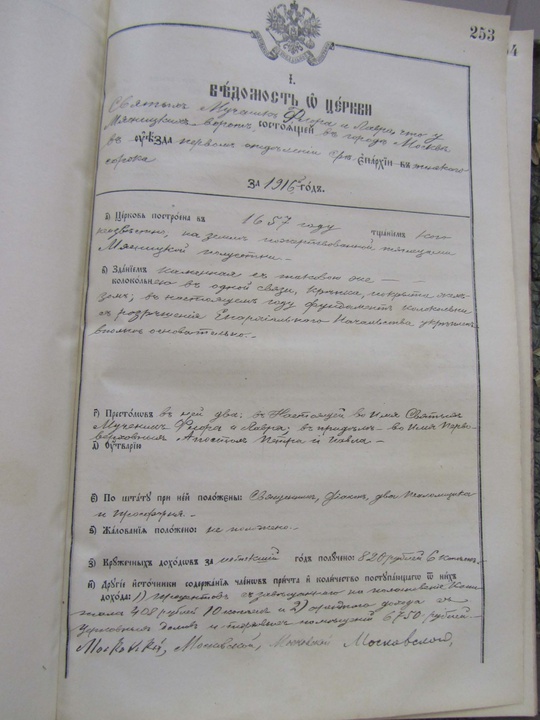 253
4
I.
Вѣдомость ѿ церкви
Святыхъ Мучениковъ Флора и Лавра, что у
Мясницкихъ воротъ, состоящей въ городѣ Москвѣ
въ оуѣзда перваго отдѣленія епархіи въ
сорока
За 1916 годъ.
а) Церковь построена въ 1657 году тщаніемъ кого
неизвѣстно, на землѣ пожертвованной
Мясницкой
в) Зданіемъ каменная съ таковою же
колокольнею въ одной связи, крѣпка, покрыта
въ настоящемъ году фундаментъ колокольни
съ разрѣшенія Епархіальнаго Начальства укрѣпленъ
вполнѣ основательно.
г) Престоловъ въ ней два: въ настоящей во имя Святыхъ
Мучениковъ Флора и Лавра; въ придѣлѣ во имя Перво-
верховныхъ Апостоловъ Петра и Павла
д) Оутварію
е) По штату при ней положены: Священникъ, Діаконъ, два Псаломщика
и Просфорня.
ѕ) Жалованія положено: не положено.
з) Кружечныхъ доходовъ за годъ получено: 820 рублей 6 копѣекъ.
и) Другіе источники содержанія членовъ причта и количество поступающаго ѿ нихъ
дохода: 1) процентовъ съ
408 рублей 10 копѣекъ и 2) дохода съ
церковныхъ домовъ и 6750 рублей.
Московскій, Московскій, Московскій Московской,